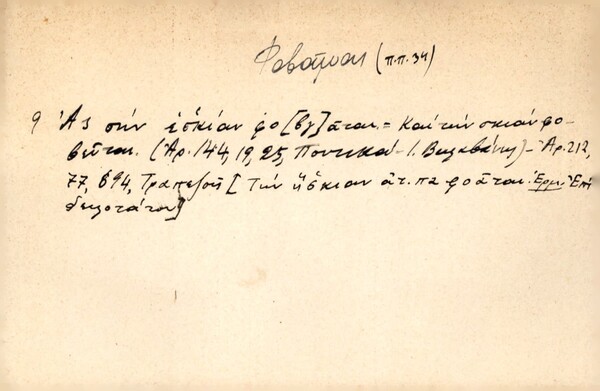 Φοβᾶμαι (π.π. 34)
9 Ἀς σήν ἐσκίαν φο[βγ]ᾶται = Καί τήν σκιάν φο-
βεῖται. (Ἀρ. 144, 19, 25, Ποντικά - Ι. Βαλαβάνης) - Ἀρ. 212,
77, 894, Τραπεζοῦς [Τήν ἥσκιαν ἀτ. πα φοᾶται. Ἑρμ. Ἐπί
δειλοτάτου]